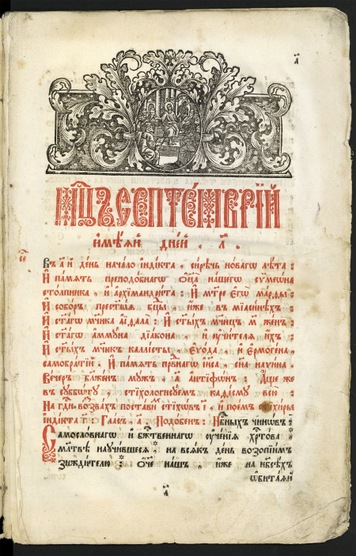 а҃
МЦ҃Ъ СЕПТЕ́МВРЇЙ
имѣ́ѧй дне́й . л҃ .
Въ а҃ й де́нь начало і҆ндїкта , си́рѣчь но́вагѡ лѣ́та :
И҆ па́мѧть преподо́бнагѡ ѻ҆ц҃а̀ на́шегѡ сѷмеѡ́на
сто́лпника , и҆ а҆рхїмандрі́та : И҆ мт҃ре є҆гѡ̀ ма́рѳы :
И҆ собо́ръ прест҃ы́ѧ бц҃ы , и҆́же въ мїасинѣ́хъ :
И҆ ст҃а́гѡ мч҃нка а҆еїѳала̀ : И҆ ст҃ы́хъ мч҃ицъ м҃ же́нъ :
И҆ ст҃а́гѡ а҆ммꙋ́на дїа́кона , и҆ ᲂу҆чи́телѧ и҆́хъ :
И҆ ст҃ы́хъ мч҃нкъ каллі́сты , Е҆ѵо́да , и҆ Е҆рмоге́на
самобра́тїй : И҆ па́мѧть пра́внагѡ і҆и҃са , сн҃а наѵи́на :
Ве́черъ бл҃же́нъ мꙋ́жъ , а҃ а҆нтїфѡ́нъ : А҆́ще же
въ сꙋббѡ́тꙋ , стїхоло́гꙋемъ , каѳі́смꙋ всю̀ :
На гд҇и возва́хъ поста́ви стїхѡ́въ і҃ , и҆ пое́мъ стїхи́ры
і҆ндїкта г҃ : Гла́съ , а҃ : Подо́бенъ : Нбⷭ҇ныхъ чинѡ́въ :
Самосло́внагѡ и҆ бж҃е́ственнагѡ ᲂу҆че́нїѧ хрⷭ҇то́ва ,
мл҃твѣ̀ наꙋчи́вшесѧ , на всѧ́къ де́нь возопїи́мъ
зижди́телю : ѻ҆́ч҃е на́шъ , и҆́же на нб҃сѣ́хъ
ѡ҆бита́ѧй
а҃